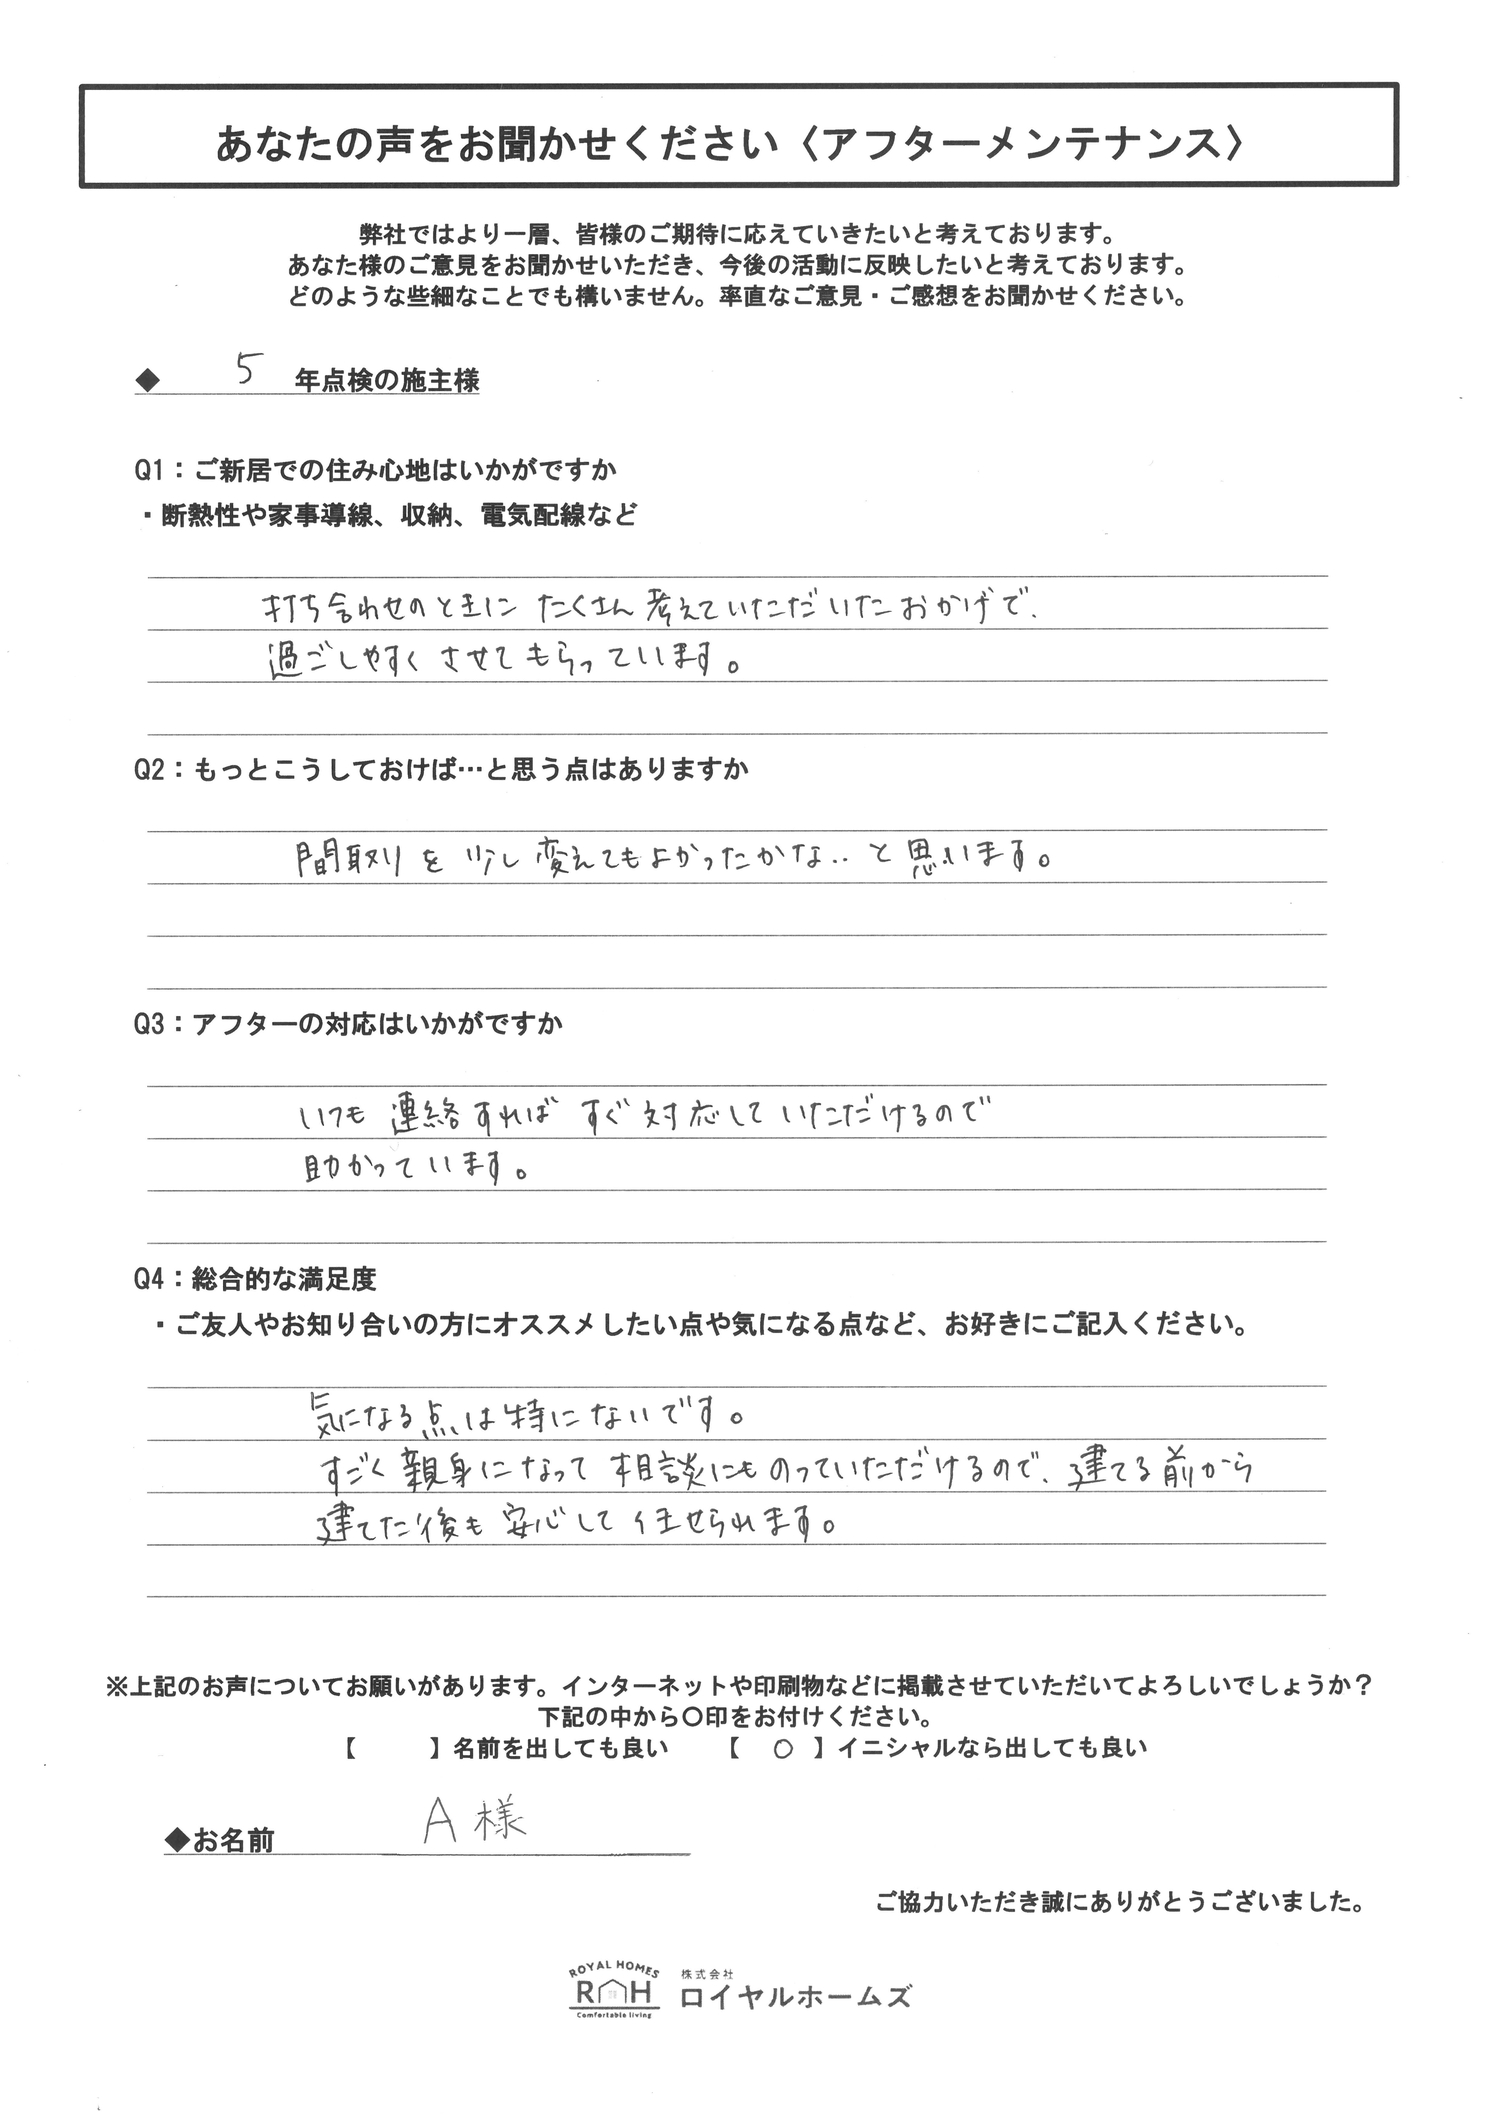 あなたの声をお聞かせください〈アフターメンテナンス〉
弊社ではより一層、皆様のご期待に応えていきたいと考えております。
あなた様のご意見をお聞かせいただき、今後の活動に反映したいと考えております。
どのような些細なことでも構いません。率直なご意見・ご感想をお聞かせください。
◆ 5 年点検の施主様
Q1：ご新居での住み心地はいかがですか
・断熱性や家事導線、収納、電気配線など
打ち合わせのときに たくさん考えていただいたおかげで、
過ごしやすくさせてもらっています。
Q2：もっとこうしておけば…と思う点はありますか
間取りを少し変えてもよかったかな‥と思います。
Q3：アフターの対応はいかがですか
いつも連絡すれば すぐ対応していただけるので
助かっています。
Q4：総合的な満足度
・ご友人やお知り合いの方にオススメしたい点や気になる点など、お好きにご記入ください。
気になる点は特にないです。
すごく親身になって相談にものっていただけるので、建てる前から
建てた後も安心して任せられます。
※上記のお声についてお願いがあります。インターネットや印刷物などに掲載させていただいてよろしいでしょうか？
下記の中から〇印をお付けください。
【　　】名前を出しても良い　【 〇 】イニシャルなら出しても良い
◆お名前 A様
ご協力いただき誠にありがとうございました。
ROYAL HOMES
RH
Comfortable living
株式会社
ロイヤルホームズ